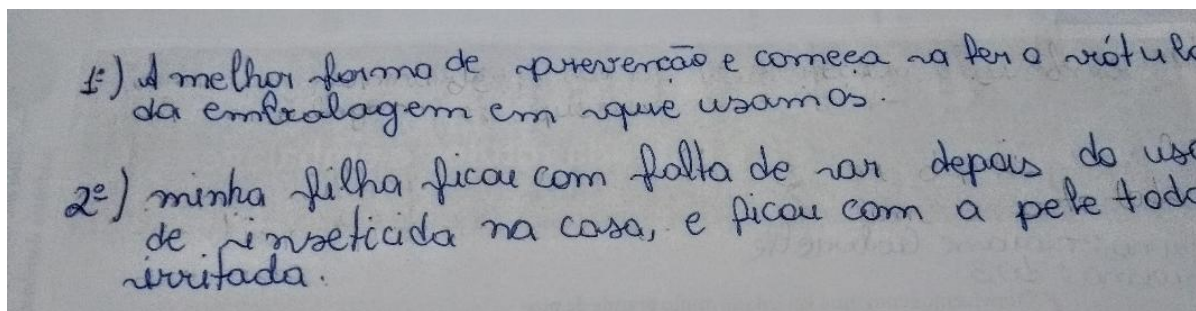 1º) A melhor forma de prevenção e começa a ler o rótulo
da embalagem em que usamos.
2º) minha filha ficou com falta de ar depois do uso
de inseticida na casa, e ficou com a pele toda
irritada.